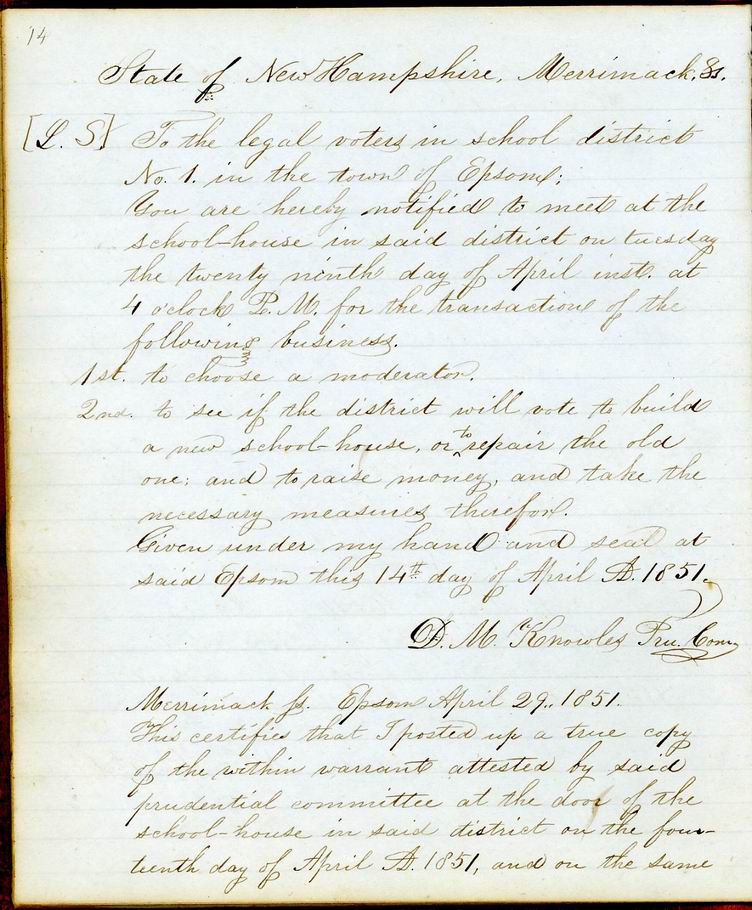 14
State of New Hampshire, Merrimack, Ss.
[L. S.] To the legal voters in school district
No. 1. in the town of Epsom;
You are hereby notified to meet at the
school-house in said district on tuesday
the twenty ninth day of April inst. at
4 o'clock P. M. for the transaction of the
following business.
1st. to choose a moderator.
2nd. to see if the district will vote to build
a new school-house, or to repair the old
one; and to raise money, and take the
necessary measures therefor.
Given under my hand and seal at
said Epsom this 14th day of April A. 1851.
D. M. Knowles Pru. Com.
Merrimack Ss. Epsom April 29., 1851.
This certifies that I posted up a true copy
of the within warrant attested by said
prudential committee at the door of the
school-house in said district on the four-
teenth day of April A. 1851, and on the same